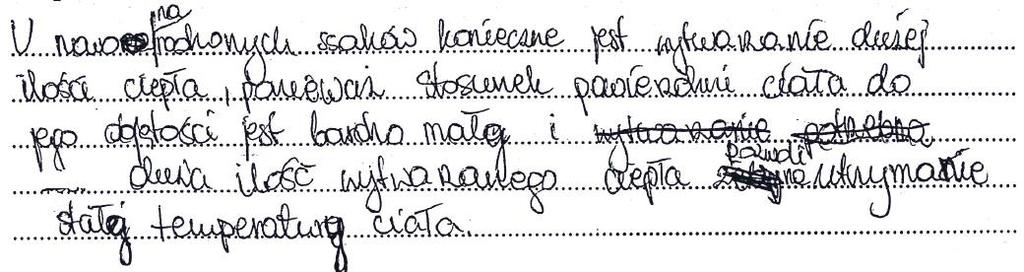 U nowonarodzonych ssaków konieczne jest wytwarzanie dużej
ilości ciepła, ponieważ stosunek powierzchni ciała do
jego objętości jest bardzo małej i wytwarzanie potrzebne
duża ilość wytwarzanego ciepła pozwoli na utrzymanie
stałej temperatury ciała.